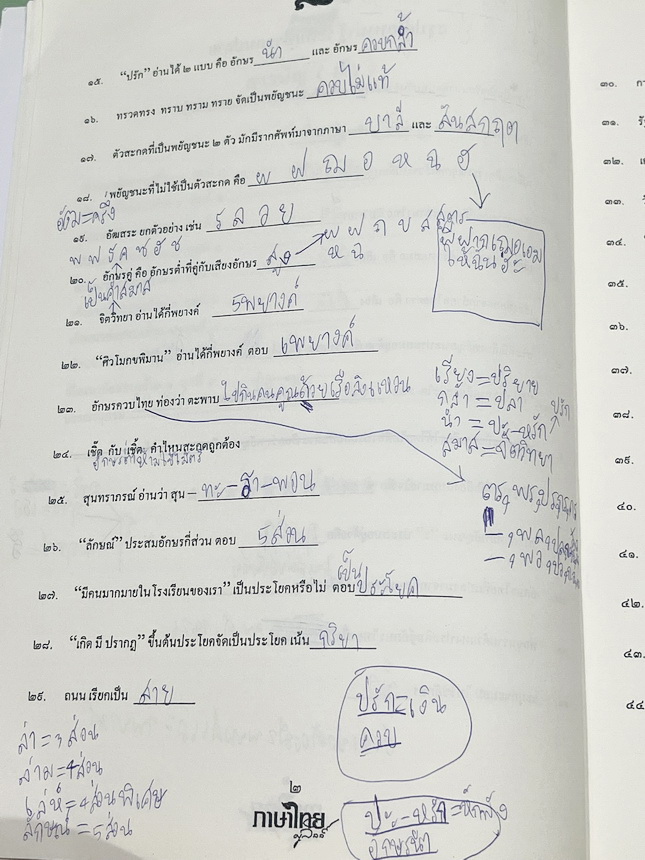 ๑๕. "ปรัก" อ่านได้ ๒ แบบ คือ อักษร นำ และ อักษร ควบกล้ำ
๑๖. ทรวดทรง ทราบ ทราม ทราย จัดเป็นพยัญชนะ ควบไม่แท้
๑๗. ตัวสะกดที่เป็นพยัญชนะ ๒ ตัว มักมีรากศัพท์มาจากภาษา บาลี และ สันสกฤต
๑๘. พยัญชนะที่ไม่ใช้เป็นตัวสะกด คือ ผ ฝ ฌ อ ห ฉ ฮ
๑๙. อัฒสระ ยกตัวอย่าง เช่น ร ล ว ย
พ ฟ ร ค ช ฮ ซ
๒๐. อักษรคู่ คือ อักษรต่ำที่คู่กับเสียงอักษร สูง
ห ฉ
ผีฝากเฌอเอม
ให้ฉัน ฮะ
เป็นคำสมาส
๒๑. จิตวิทยา อ่านได้กี่พยางค์ 5พยางค์
๒๒. "ศิวโมกขพิมาน" อ่านได้กี่พยางค์ ตอบ พยางค์
๒๓. อักษรควบไทย ท่องว่า ตะพาบ ไปกินคนคูณด้วยเรือลิงแหวน
เรียง=ปริยาย
กล้ำ=ปลา
นำ=ปะ-หรัก ปรัก
สมาส=จิตวิทยา
๒๔. เชิ๊ต กับ เชิ้ต คำไหนสะกดถูกต้อง
อักษรต่ำห้ามใช้ไม้ตรี
๒๕. สุนทราภรณ์ อ่านว่า สุน – ทะ-รา-พอน
๒๖. "ลักษณ์" ประสมอักษรกี่ส่วน ตอบ 5ส่วน
๒๗. "มีคนมากมายในโรงเรียนของเรา" เป็นประโยคหรือไม่ ตอบ เป็นประโยค
๒๘. "เกิด มี ปรากฏ" ขึ้นต้นประโยคจัดเป็นประโยค เน้น กริยา
๒๙. ถนน เรียกเป็น สาย
ปรัก=เงิน
ควบ
ล่า=3 ส่วน
ล่าม=4ส่วน
เล่ห์=4ส่วนพิเศษ
ลักษณ์=5ส่วน
ปะ-หรัก=หักพัง
อักษรนำ
๒
ภาษาไทย
๓๐.
๓๑.
๓๒.
๓๓.
๓๔.
๓๕.
๓๖.
๓๗.
๓๘.
๓๙.
๔๐.
๔๑.
๔๒.
๔๓.
๔๔